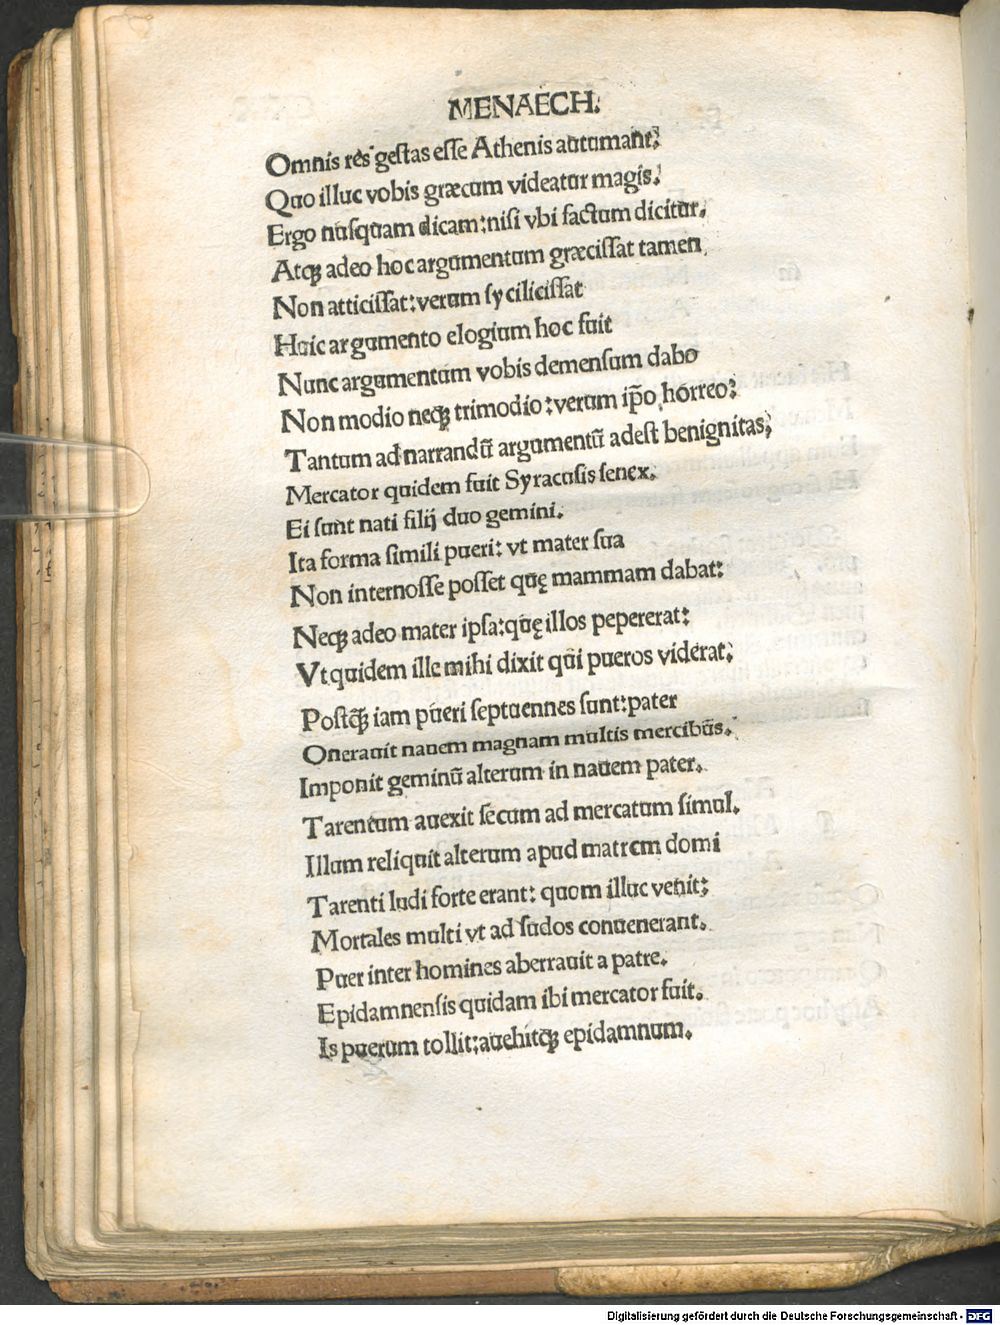 MENAECH.
Omnis res gestas esse Athenis autumant;
Quo illuc vobis græcum videatur magis.
Ergo nusquam dicam:nisi vbi factum dicitur.
Atqꝫ adeo hoc argumentum græcissat tamen
Non atticissat:verum sycilicissat
Huic argumento elogium hoc fuit
Nunc argumentum vobis demensum dabo
Non modio neqꝫ trimodio:verum ip̃o horreo:
Tantum ad narrandũ argumentũ adest benignitas;
Mercator quidem fuit Syracusis senex.
Ei sunt nati filij duo gemini.
Ita forma simili pueri: vt mater sua
Non internosse posset quę mammam dabat:
Neqꝫ adeo mater ipsa:quę illos pepererat:
Vt quidem ille mihi dixit qui pueros viderat;
Postqꝫ iam pueri septuennes sunt:pater
Onerauit nauem magnam multis mercibus.
Imponit geminũ alterum in nauem pater.
Tarentum auexit secum ad mercatum simul.
Illum reliquit alterum apud matrem domi
Tarenti ludi forte erant: quom illuc venit;
Mortales multi vt ad sudos conuenerant.
Puer inter homines aberrauit a patre.
Epidamnensis quidam ibi mercator fuit.
Is puerum tollit:auehitqꝫ epidamnum.
Digitalisierung gefördert durch die Deutsche Forschungsgemeinschaft - DFG